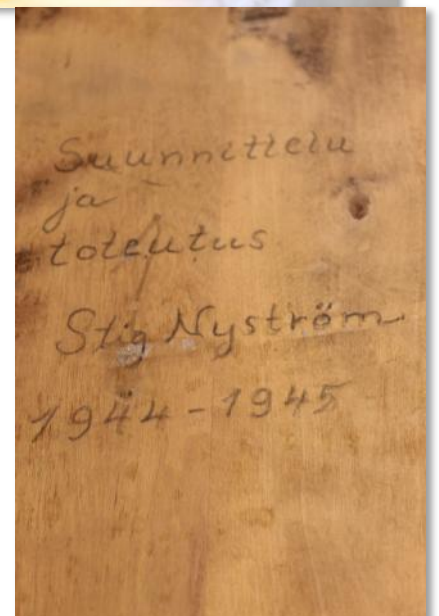 Suunnittelu
ja
toteutus
Stig Nyström
1944-1945